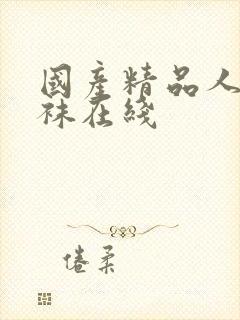 國產精品人
袜在綫
倦柔